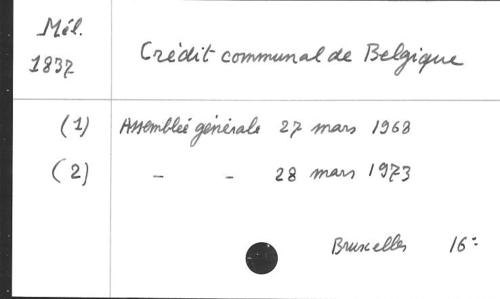 Mél.
1837
Crédit communal de Belgique
(1) Assemblée générale 27 mars 1968
(2) - - 28 mars 1973
Bruxelles 16: